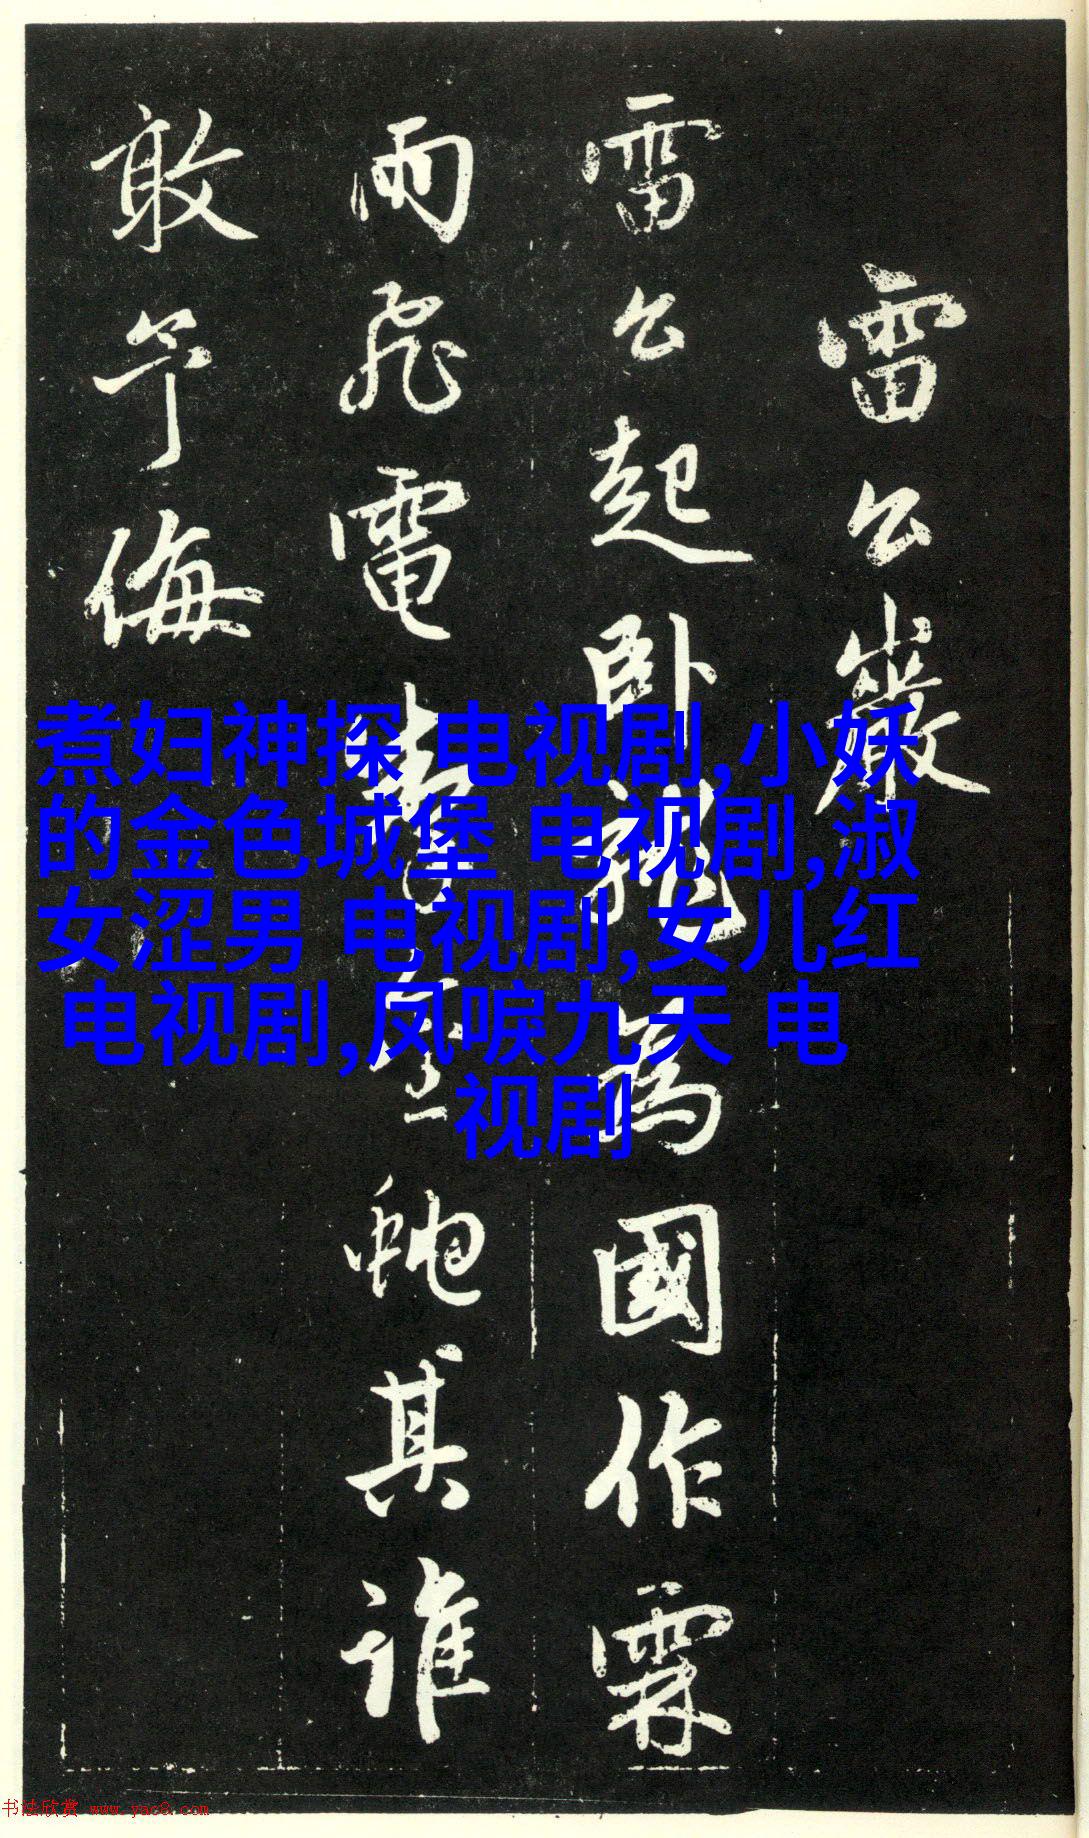 雷公巖
雷公起卧龍為國作霖
雨飛電掣蛇其誰
敢予侮
煮妇神探 电视剧,小妖
的金色城堡 电视剧,淑
女涩男 电视剧,女儿红
电视剧,凤唳九天 电
视剧
书法欣赏 www.yac8.com